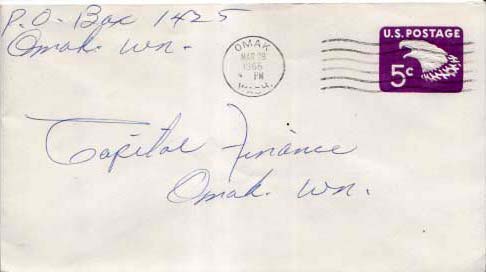 P.O. Box 1425
Omak. Wn.
OMAK
MAR 28
1966
PM
WASH.
U.S. POSTAGE
5c
Capital Finance
Omak. Wn.